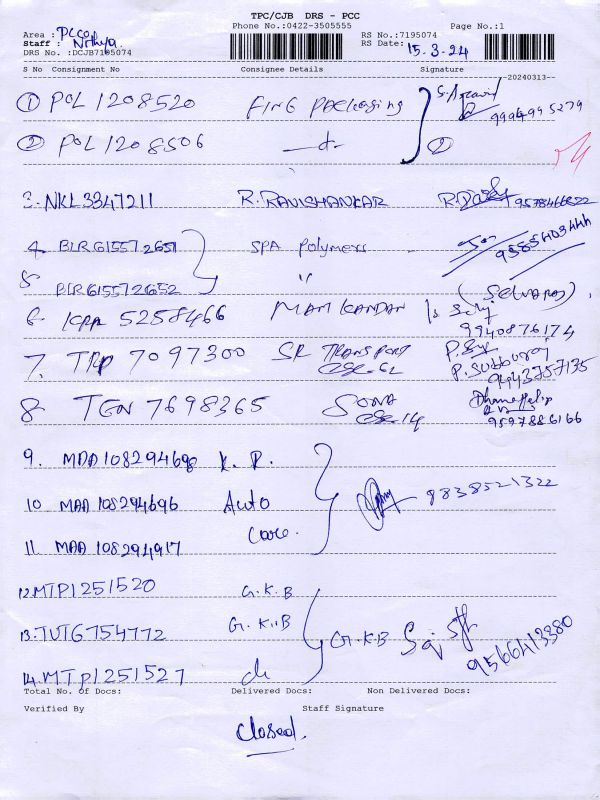 TPC/CJB DRS - PCC
Phone No.:0422-3505555 Page No.:1
Area : PCCO RS No.:7195074
Staff : Nithya RS Date: 15.3.24
DRS No. :DCJB7195074
S No Consignment No Consignee Details Signature
--20240313--
① POL 1208520 FING Packaging 9994995279
② POL 1208506 —d— ②
3. NKL3347211 R. RAVISHANKAR 9578466822
4. BLR615572651 SPA Polymers 9585403444
5. BLR615572652 " (SELVARAJ)
6. KRR 5258466 MANIKANDAN 9940876174
7. TRP 7097300 SR TRANSPORT P. Subburaj 9443757135
8. TEN 7698365 SONA 9597886166
9. MAA108294698 K. R.
10 MAA 108294696 Auto 9838521322
11. MAA 108294917 Care.
12. MTP1251520 G.K.B
13. TUTG754772 G.K.B G.K.B 9566413380
14. MTP1251527 do
Total No. of Docs: Delivered Docs: Non Delivered Docs:
Verified By Staff Signature
Closed.